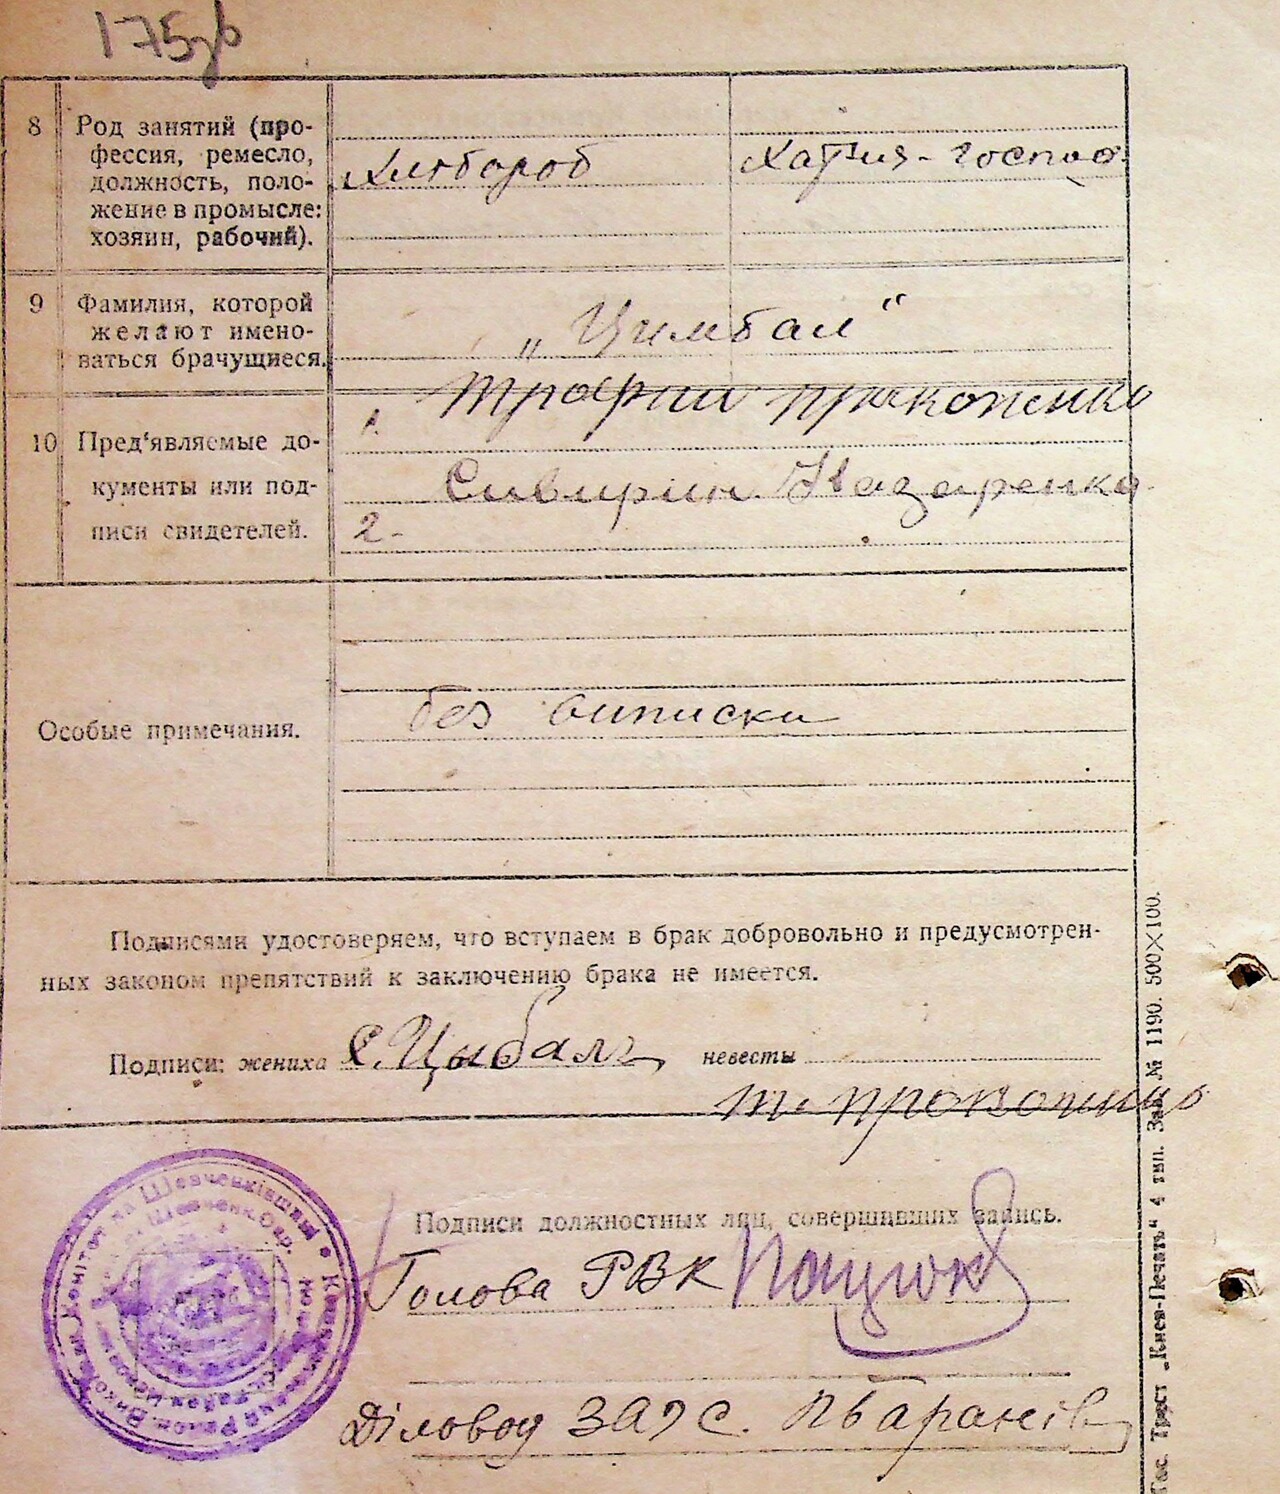 175зв
8 Род занятий (про-
фессия, ремесло,
должность, поло-
жение в промысле:
хозяин, рабочий).
Хлебороб
Хатня-господ.
9 Фамилия, которой
желают имено-
ваться брачущиеся.
„Цимбал“
10 Пред'являемые до-
кументы или под-
писи свидетелей.
1. Трофим Прокопенко
Сивирин Назаренко
2-
Особые примечания.
без виписки
Подписями удостоверяем, что вступаем в брак добровольно и предусмотрен-
ных законом препятствий к заключению брака не имеется.
Подписи: жениха С. Цыбалъ невесты
Подписи должностных лиц, совершивших запись.
Голова РВК
Діловод ЗАГС.
Гос. Трест „Киев-Печать“ 4 тип. Зак. № 1190. 500×100.